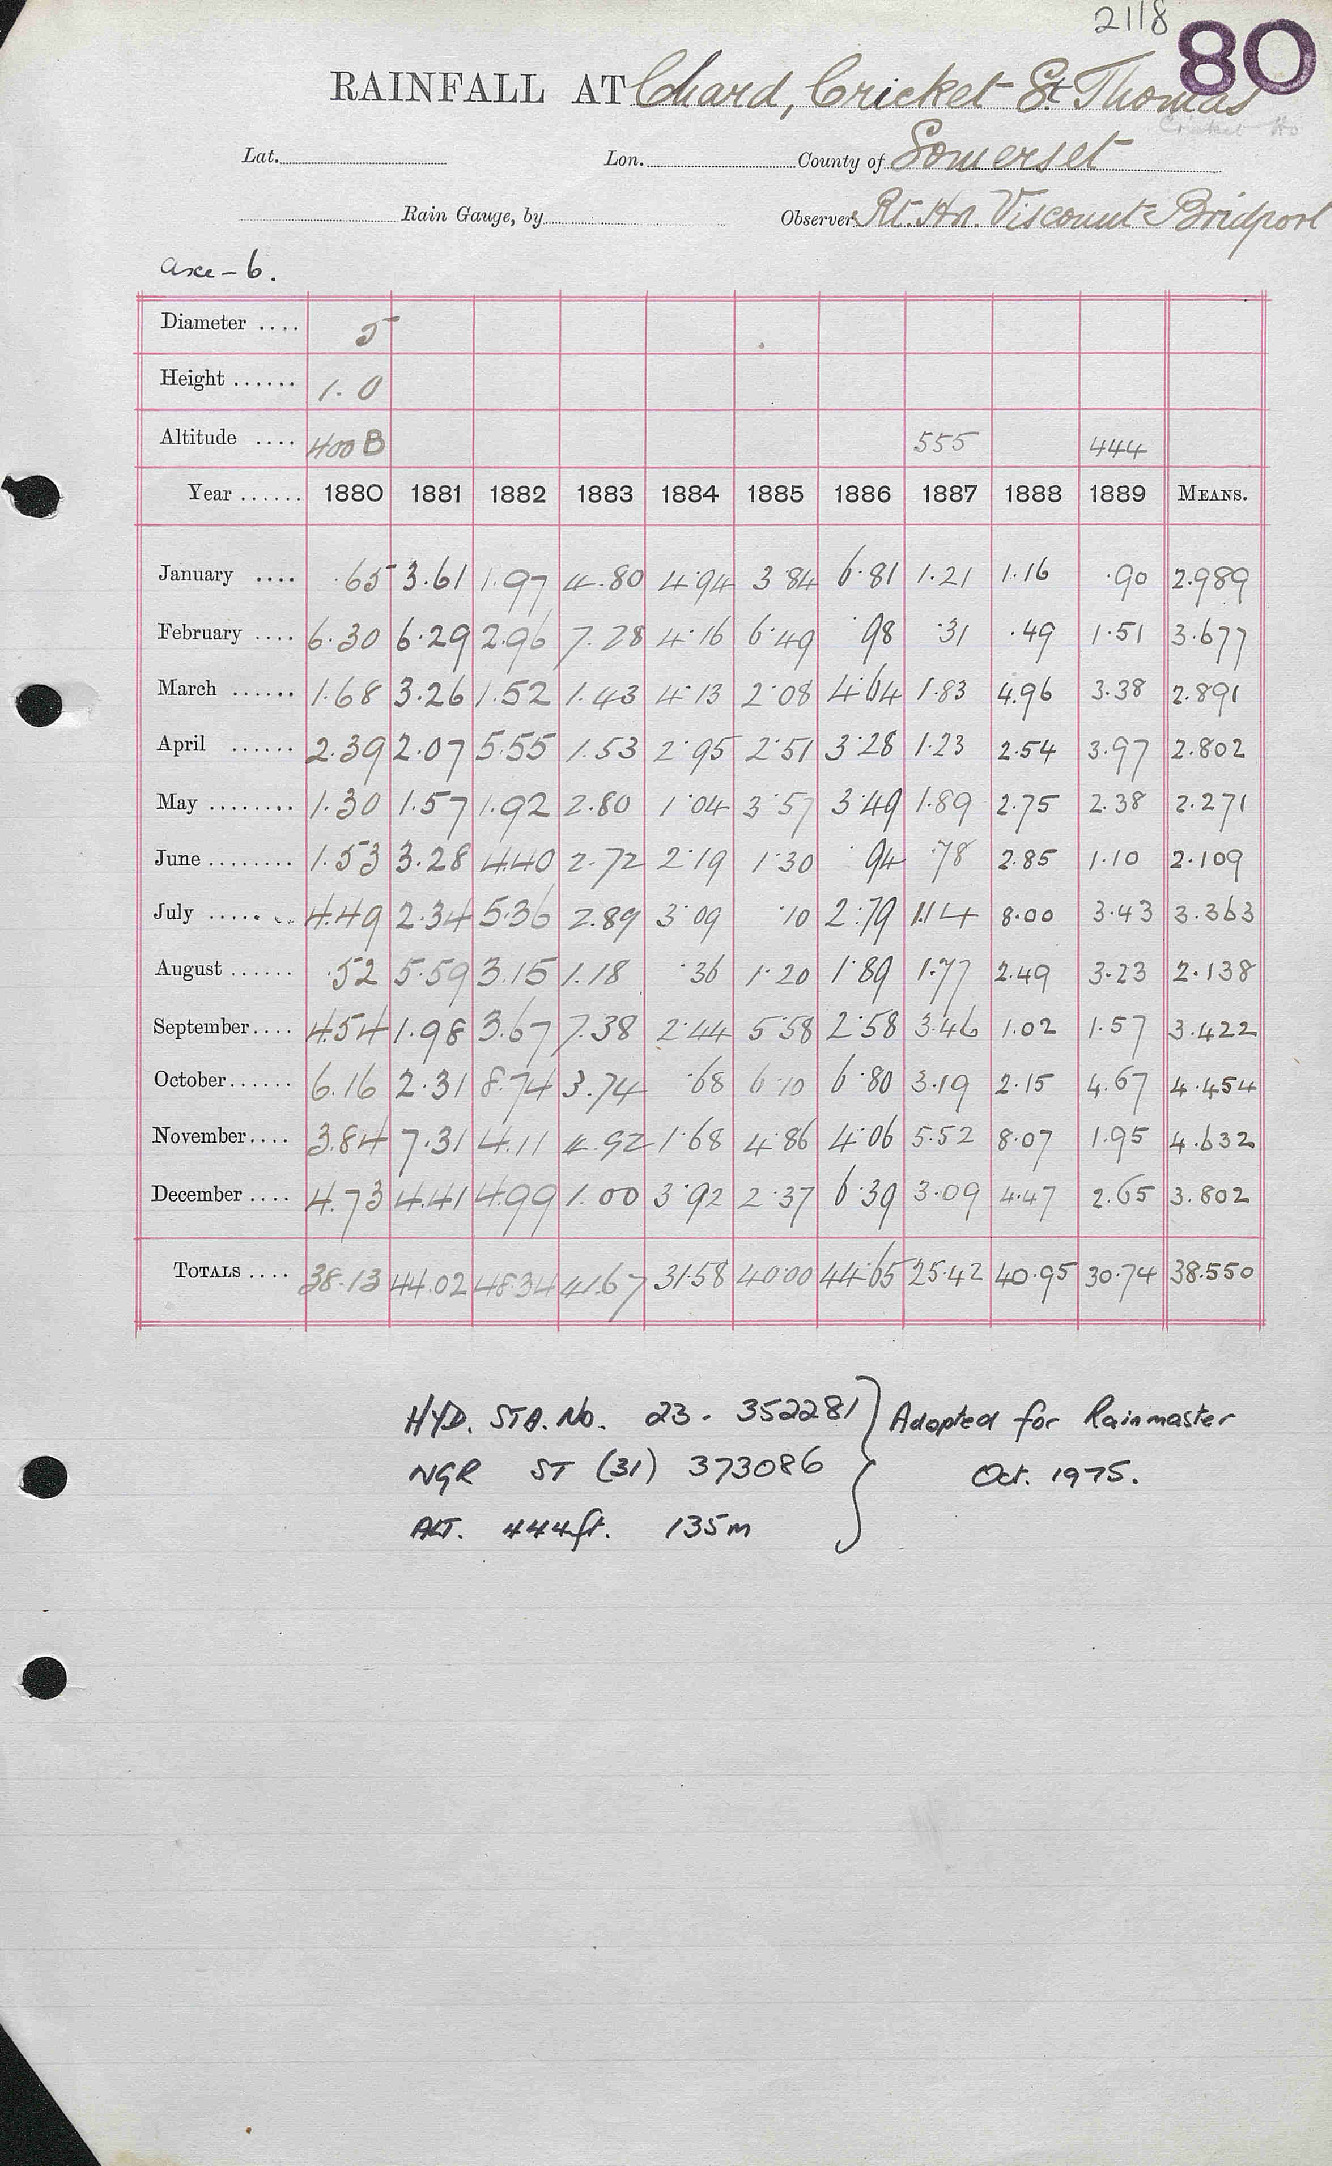 2118
80
RAINFALL AT Chard, Cricket St. Thomas
Cricket Ho
Lat. Lon. County of Somerset
Rain Gauge, by Observer Rt. Hn. Viscount Bridport
Axe - 6.
Diameter .... 5
Height ...... 1.0
Altitude .... 400 B 555 444
Year ...... 1880 1881 1882 1883 1884 1885 1886 1887 1888 1889 MEANS.
January .... .65 3.61 1.97 4.80 4.94 3.84 6.81 1.21 1.16 .90 2.989
February .... 6.30 6.29 2.96 7.28 4.16 6.49 .98 .31 .49 1.51 3.677
March ...... 1.68 3.26 1.52 1.43 4.13 2.08 4.64 1.83 4.96 3.38 2.891
April ...... 2.39 2.07 5.55 1.53 2.95 2.51 3.28 1.23 2.54 3.97 2.802
May ........ 1.30 1.57 1.92 2.80 1.04 3.57 3.49 1.89 2.75 2.38 2.271
June ........ 1.53 3.28 4.40 2.72 2.19 1.30 .94 .78 2.85 1.10 2.109
July ........ 4.49 2.34 5.36 2.89 3.09 .10 2.79 1.14 8.00 3.43 3.363
August ...... .52 5.59 3.15 1.18 .36 1.20 1.89 1.77 2.49 3.23 2.138
September.... 4.54 1.98 3.67 7.38 2.44 5.58 2.58 3.46 1.02 1.57 3.422
October...... 6.16 2.31 8.74 3.74 .68 6.10 6.80 3.19 2.15 4.67 4.454
November.... 3.84 7.31 4.11 4.92 1.68 4.86 4.06 5.52 8.07 1.95 4.632
December .... 4.73 4.41 4.99 1.00 3.92 2.37 6.39 3.09 4.47 2.65 3.802
TOTALS .... 38.13 44.02 48.34 41.67 31.58 40.00 44.65 25.42 40.95 30.74 38.550
HYD. STA. No. 23. 352281 } Adopted for Rainmaster
NGR ST (31) 373086 Oct. 1975.
ALT. 444ft. 135m